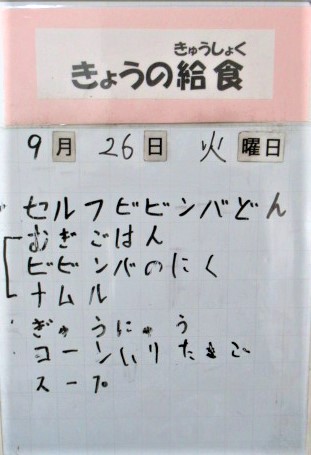 きゅうしょく
きょうの給食
9月 26日 火曜日
セルフビビンバどん
むぎごはん
ビビンバのにく
ナムル
ぎゅうにゅう
コーンいりたまご
スープ